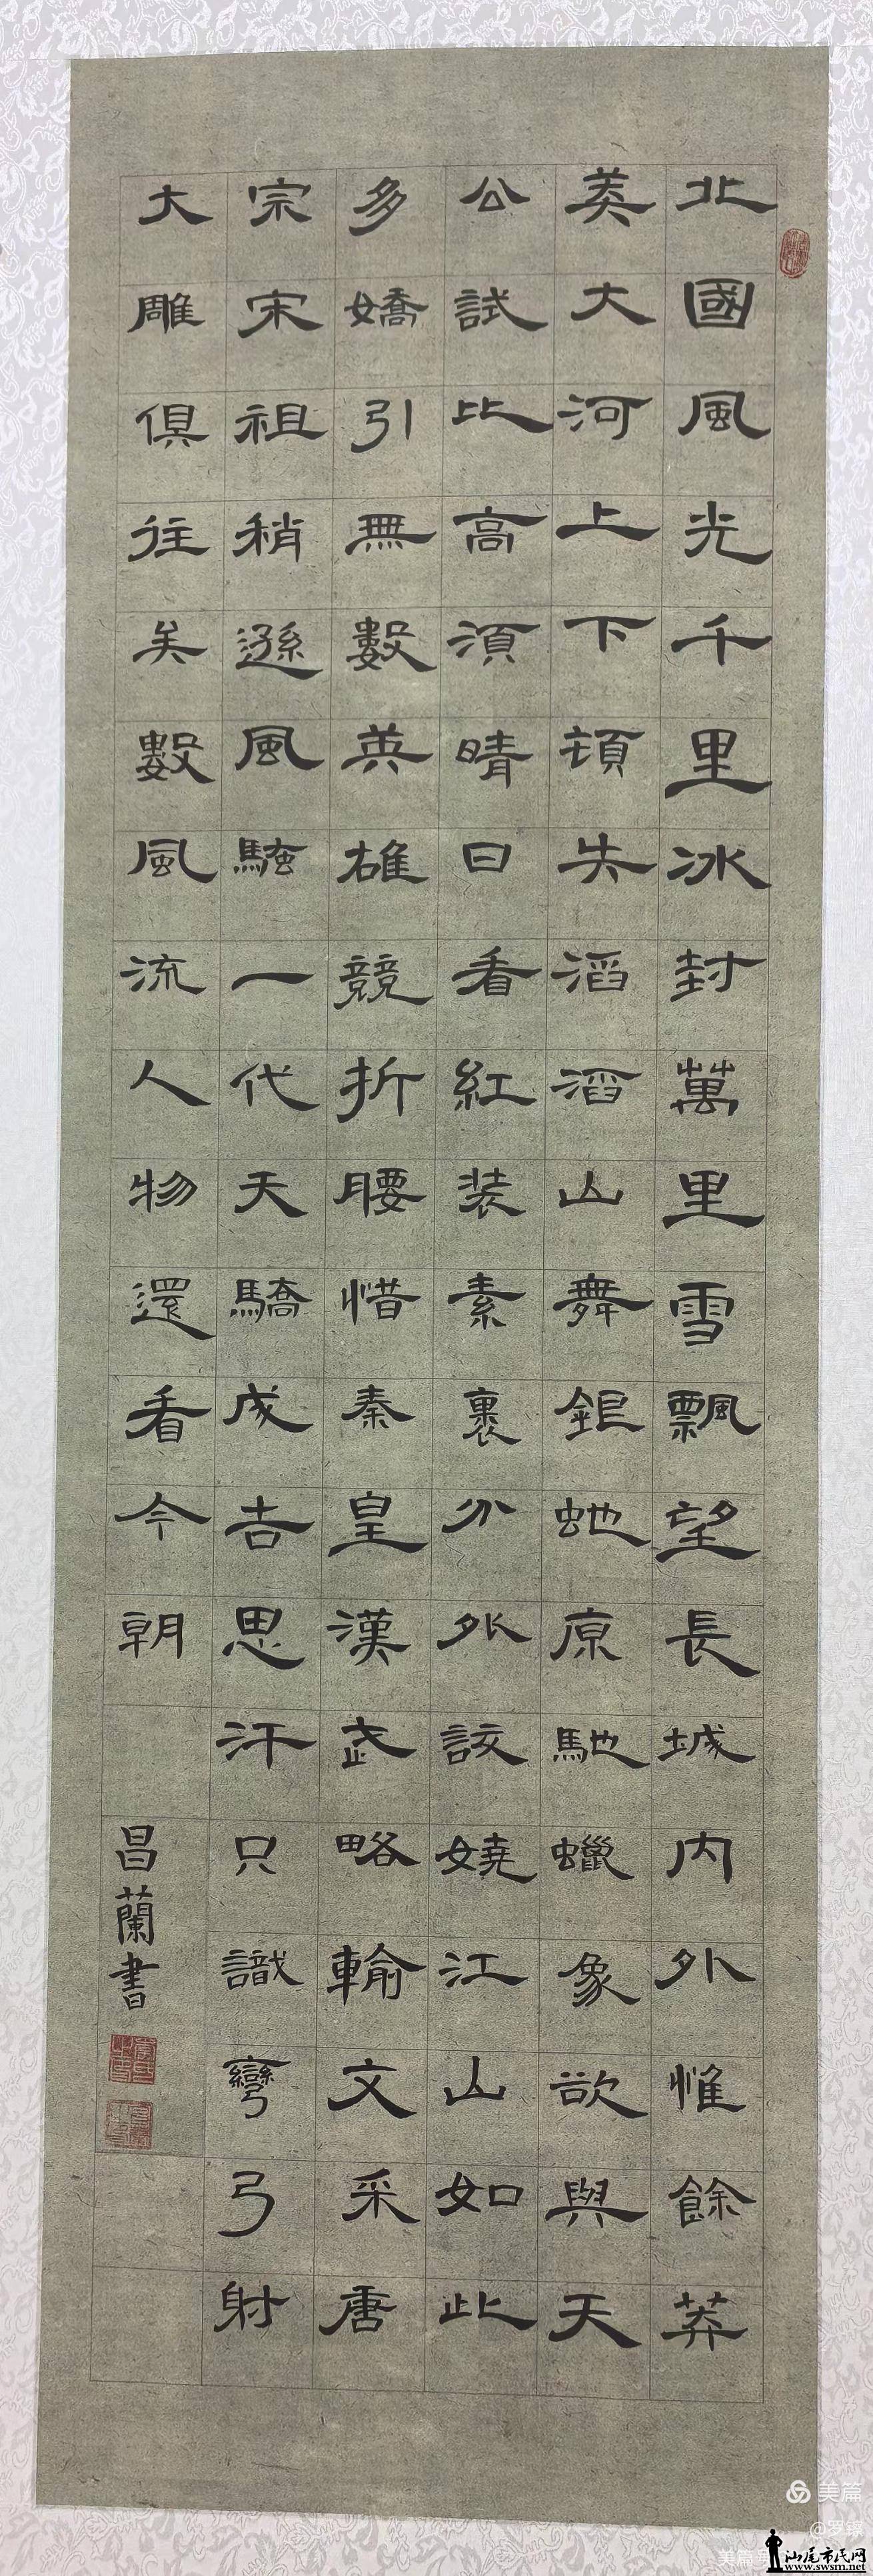 北國風光千里冰封萬里雪飄望長城內外惟餘莽
莽大河上下頓失滔滔山舞銀蛇原馳蠟象欲與天
公試比高須晴日看紅装素裹分外訤嬈江山如此
多嬌引無數英雄競折腰惜秦皇漢武略輸文采唐
宗宋祖稍遜風騷一代天驕成吉思汗只識彎弓射
大雕俱往矣數風流人物還看今朝
昌蘭書
美篇
@罗
美篇
汕尾市民网
www.swsm.net